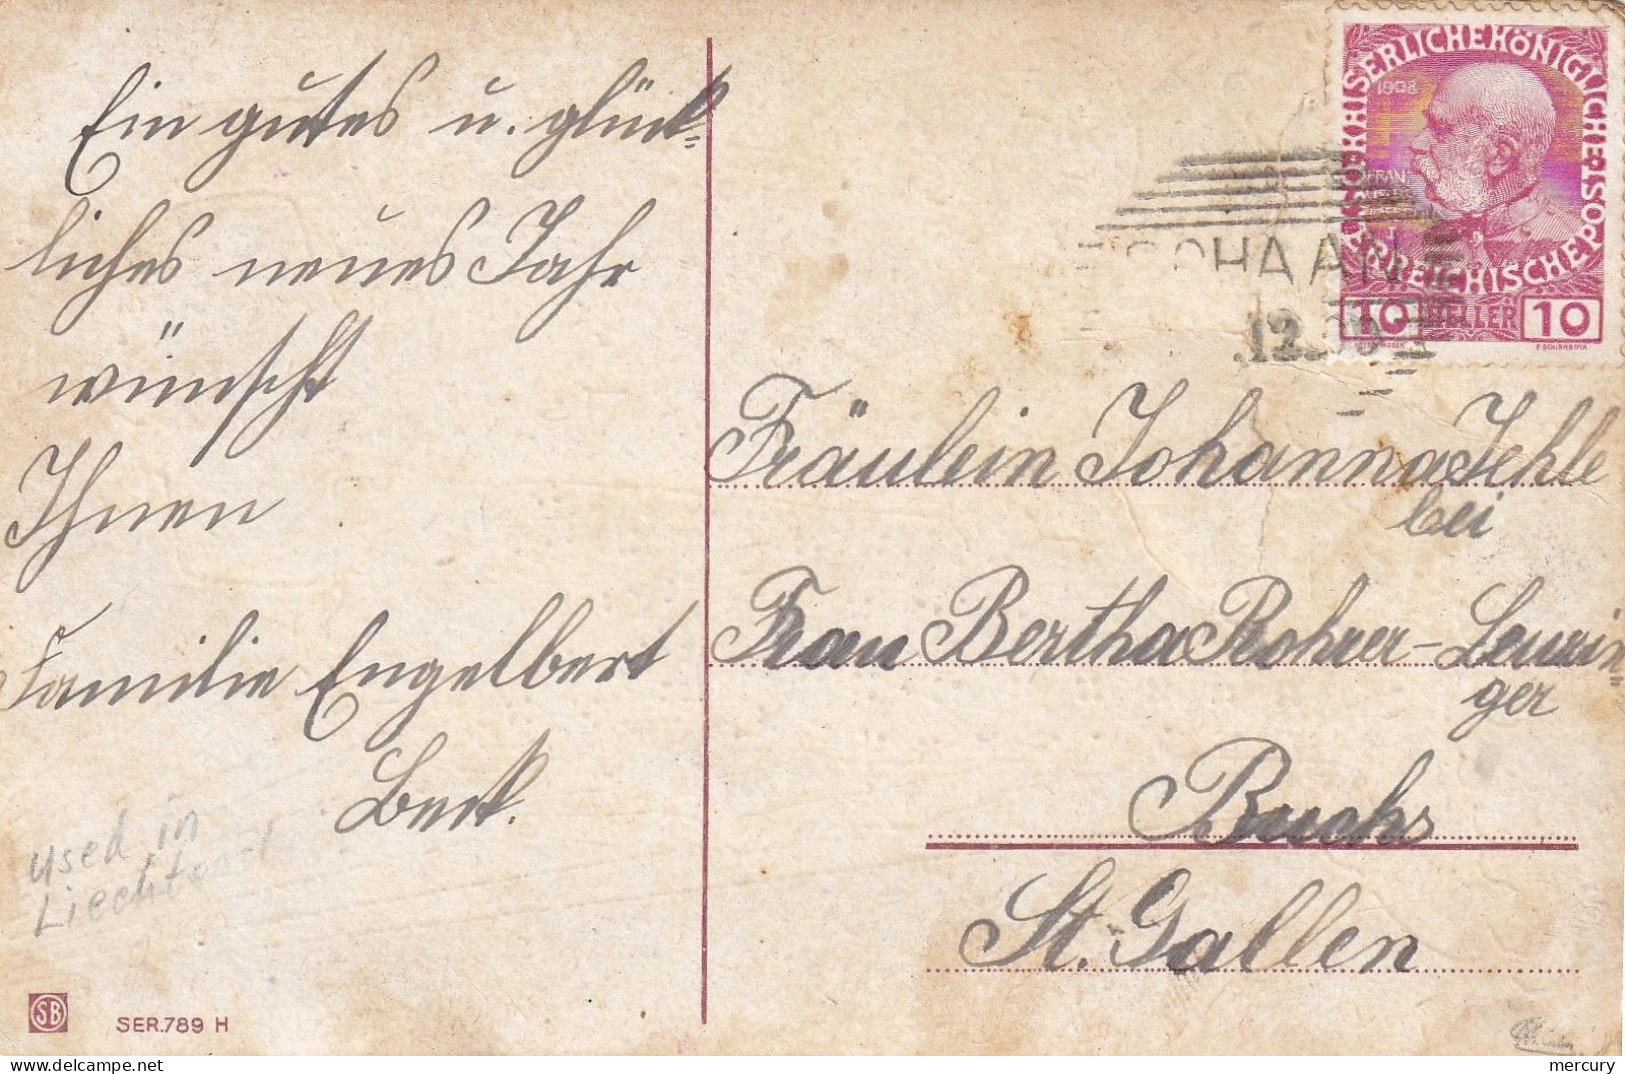 Ein gutes u. glück-
liches neues Jahr
wünscht
Ihnen
Familie Engelbert
Beck.
used in
SER.789 H
SB
KAISERLICHEKÖNIGLICHE
REICHISCHE POST
1908
10 HELLER 10
SCHAAN
Fräulein Johanna Jehle
bei
Frau Bertha Rohrer-Leuzin-
ger
Buchs
St. Gallen
mercury